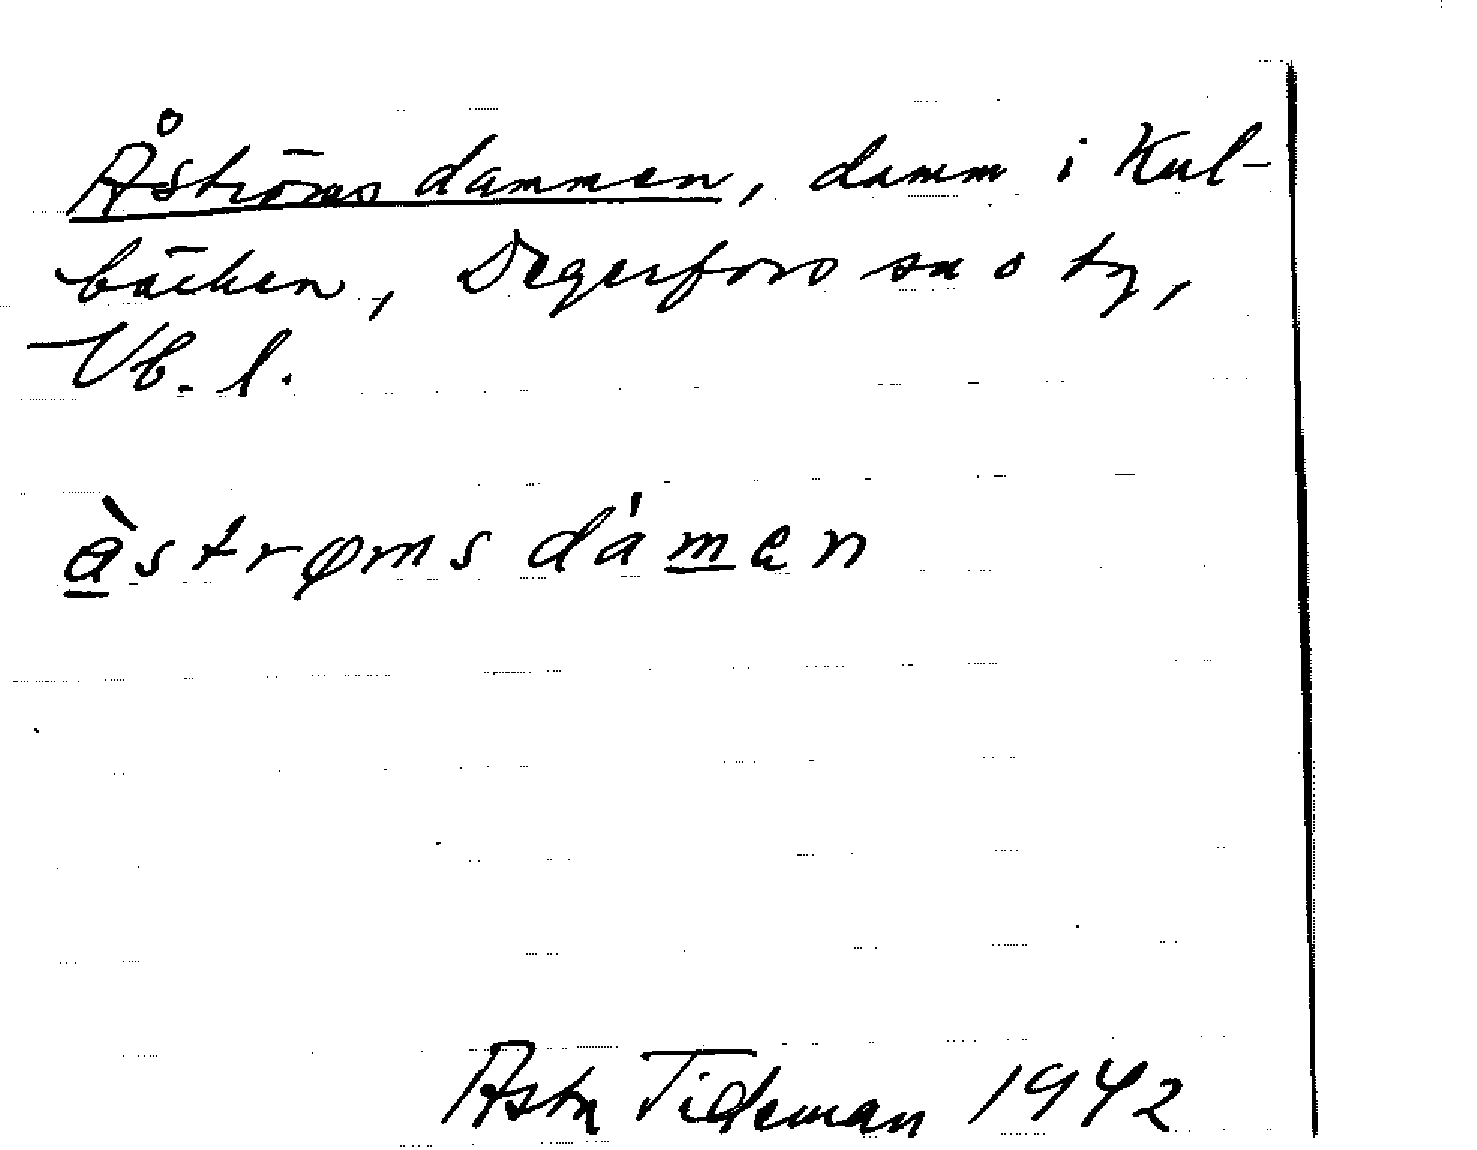 Åströmsdammen, damm i Kul-
bäcken, Degerfors sn o tg,
Vb. l.
à̲strøms dám̲en
Asta Tideman 1942